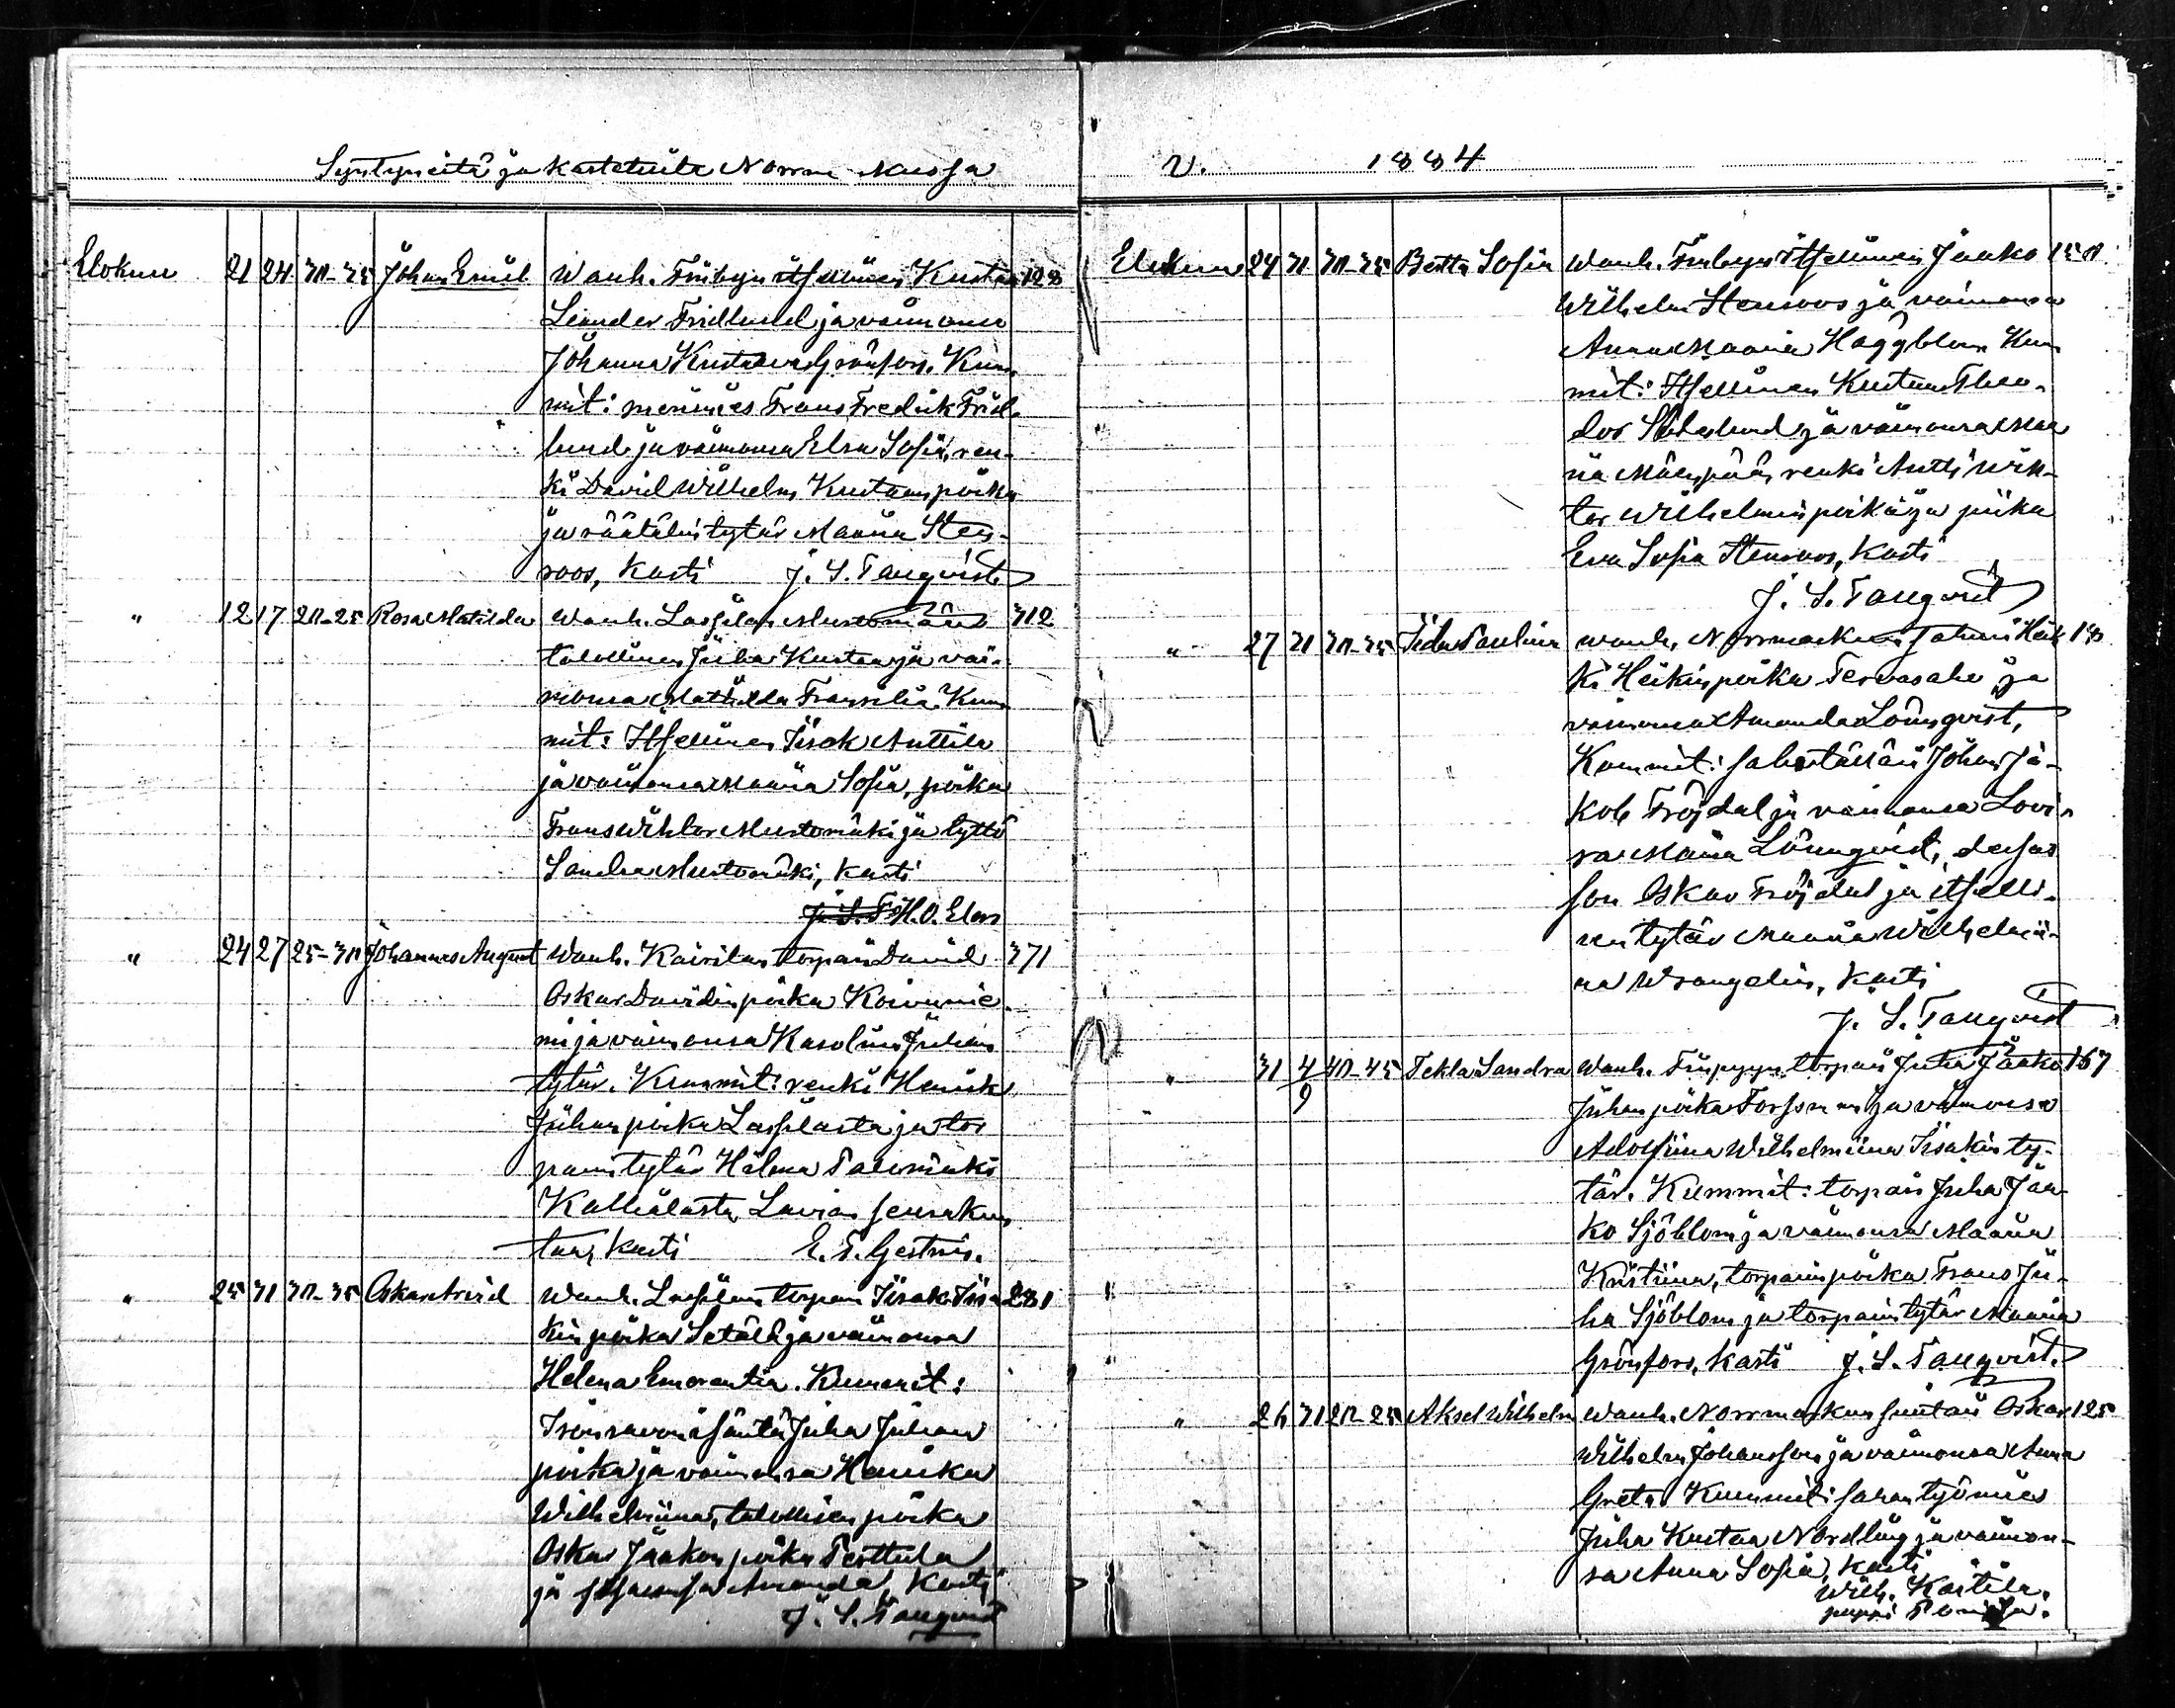 Syntyneitä ja kastetuita Norrmarkussa
Elokuu 21 24 30-35 Johan Emil Wanh. Finbyn itsellinen Kustaa 128
Leander Fridlund ja vaimonsa
Johanna Kustaava Grönfors. Kum-
mit: merimies Frans Fredrik Frid-
lund ja vaimonsa Elsa Sofia, ren-
ki David Wilhelm Kustaanpoika
ja räätälintytär Maria Sten-
roos, kasti J. S. Tanqvist
" 12 17 20-25 Rosa Matilda Wanh. Lassilan Mustomäen 312
talollinen Juha Kustaa ja vai-
monsa Matilda Fransilia. Kum-
mit: Itsellinen Iisak Anttila
ja vaimonsa Maria Sofia, poika
Frans Wihtor Mustomäki ja tyttö
Sandra Mustomäki, kasti
J. S. T H. O. Elers
" 24 27 25-30 Johannes August Wanh. Kairilan torpari David 371
Oskar Davidinpoika Koivunie-
mi ja vaimonsa Karolina Juhan
tytär. Kummit: renki Henrik
Juhanpoika Lassilasta ja tor
parintytär Hilma Palomäki
Kallialasta Lavian seurakun
taa, kasti E. T. Gestrin.
" 25 31 30-35 Oskar Arvid Wanh. Lassilan torpari Iisak Iisa 231
kinpoika Satäli ja vaimonsa
Helena Emerentia. Kummit:
isäntä Juha Juhan
poika ja vaimonsa Henrika
Wilhelmiina, talollisen poika
Oskar Jaakonpoika Perttula
ja Amanda, kasti
J. S. Tanqvist
v. 1884
Elokuu 24 31 30-35 Berta Sofia Wanh. Finbyn itsellinen Jaako 150
Wilhelm Stenroos ja vaimonsa
Anna Maaria Häggblom. Kum
mit: Itsellinen Kustaa Theo-
dor Söderlund ja vaimonsa Maa
ria Mäenpää, renki Antti Wih-
tor Wilhelminpoika ja piika
Eva Sofia Stenroos, kasti
J. S. Tanqvist
" 27 31 30-35 Iida Paulina Wanh. Norrmarkun Heik 18
ki Heikinpoika Tervasalo ja
vaimonsa Amanda Lönnqvist,
Kummit: Johan Ja-
kob Fröjdal ja vaimonsa Lovi-
sa Maria Lönnqvist,
son Oskar Fröjdal ja itselli-
sen tytär Maria Wilhelmii-
na Wrangelin, kasti
J. S. Tanqvist
" 31 4/9 40-45 Tekla Sandra Wanh. Finpyyn torpari Juha Jaako 167
Juhanpoika Forsman ja vaimonsa
Adolfiina Wilhelmiina Iisakin ty-
tär. Kummit: torpari Juha Jaa
ko Sjöblom ja vaimonsa Maaria
Kristiina, torparinpoika Frans Ju-
ha Sjöblom ja torparintytär Maaria
Grönfors, kasti J. S. Tanqvist.
" 26 31 20-25 Aksel Wilhelm Wanh. Norrmarkun suntari Oskar 125
Wilhelm Johansson ja vaimonsa Anna
Greta. Kummit: sahan työmies
Juha Kustaa Nordling ja vaimon-
sa Anna Sofia, kasti
Wilh. Kärtilä.
pappi